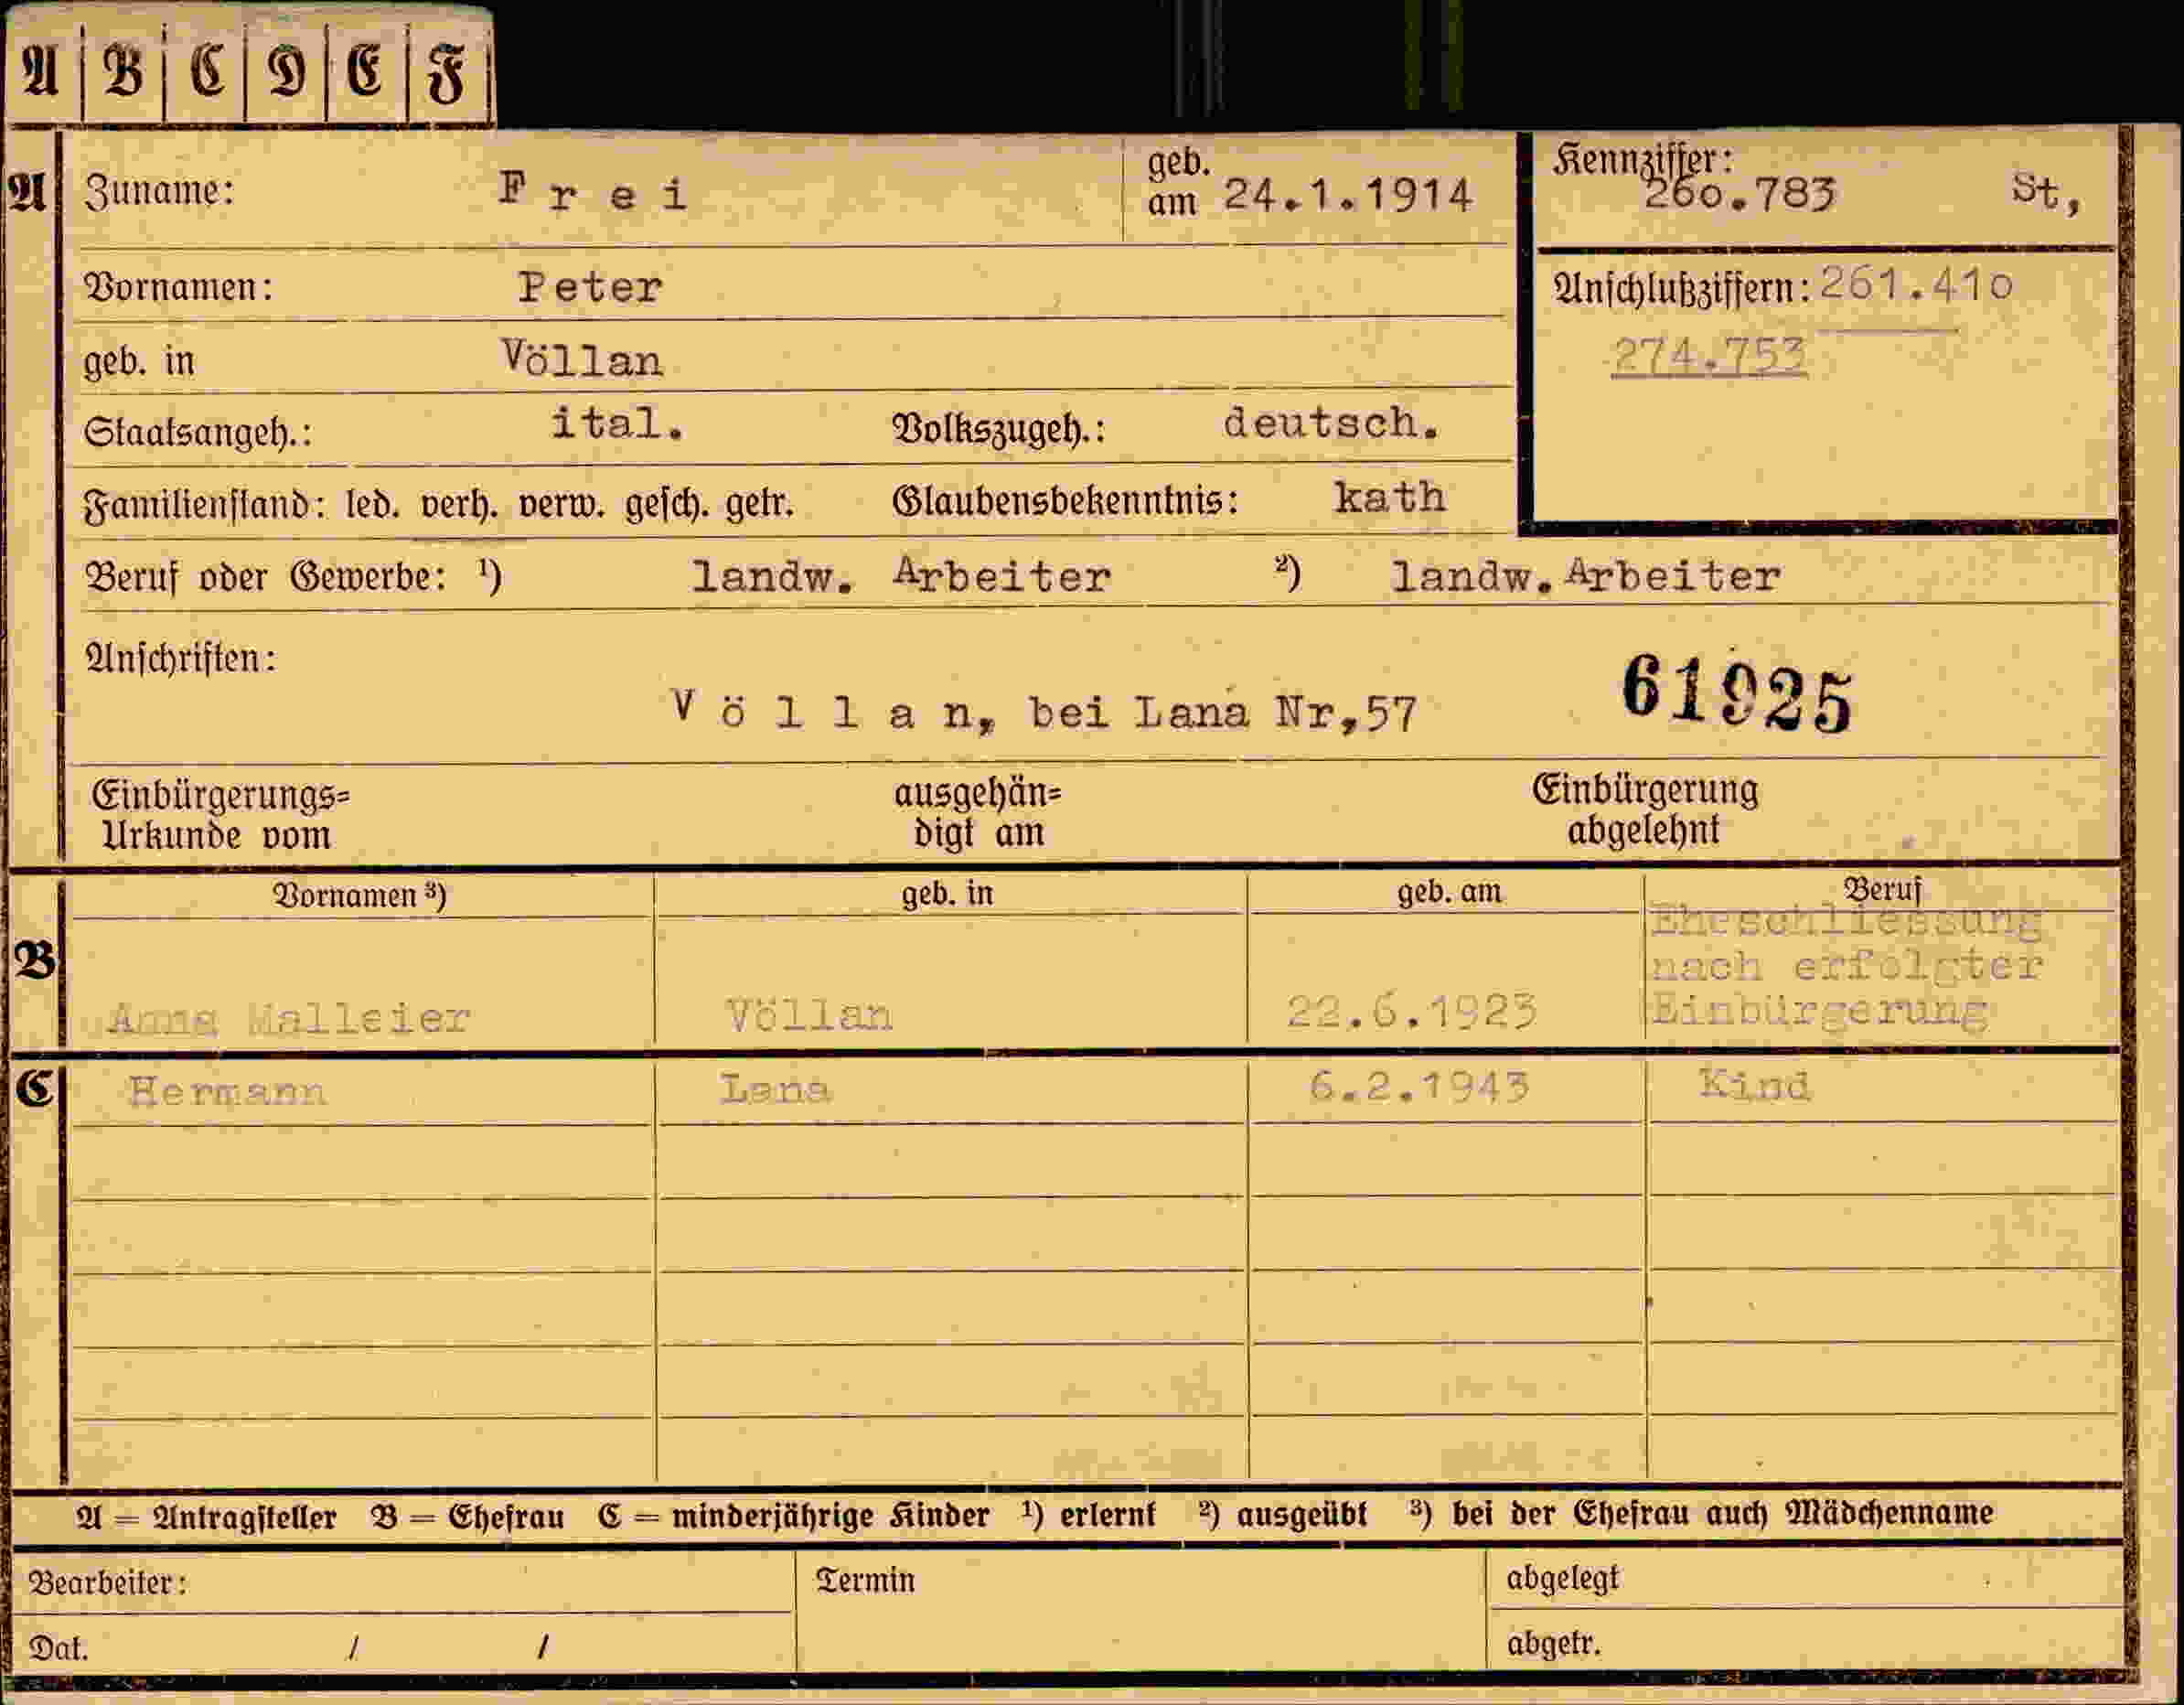 A B C D E F
A Zuname: Frei geb. am 24.1.1914 Kennziffer: 260.783 St,
Vornamen: Peter Anschlußziffern: 261.410
geb. in Völlan 274.753
Staatsangeh.: ital. Volkszugeh.: deutsch.
Familienstand: led. verh. verw. gesch. getr. Glaubensbekenntnis: kath
Beruf oder Gewerbe: ¹) landw. Arbeiter ²) landw. Arbeiter
Anschriften:
Völlan, bei Lana Nr,57 61925
Einbürgerungs= ausgehän= Einbürgerung
Urkunde vom digt am abgelehnt
Vornamen ³) geb. in geb. am Beruf
Eheschliessung
B nach erfolgter
Anna Malleier Völlan 22.6.1923 Einbürgerung
C Hermann Lana 6.2.1943 Kind
A = Antragsteller B = Ehefrau C = minderjährige Kinder ¹) erlernt ²) ausgeübt ³) bei der Ehefrau auch Mädchenname
Bearbeiter: Termin abgelegt
Dat. / / abgetr.